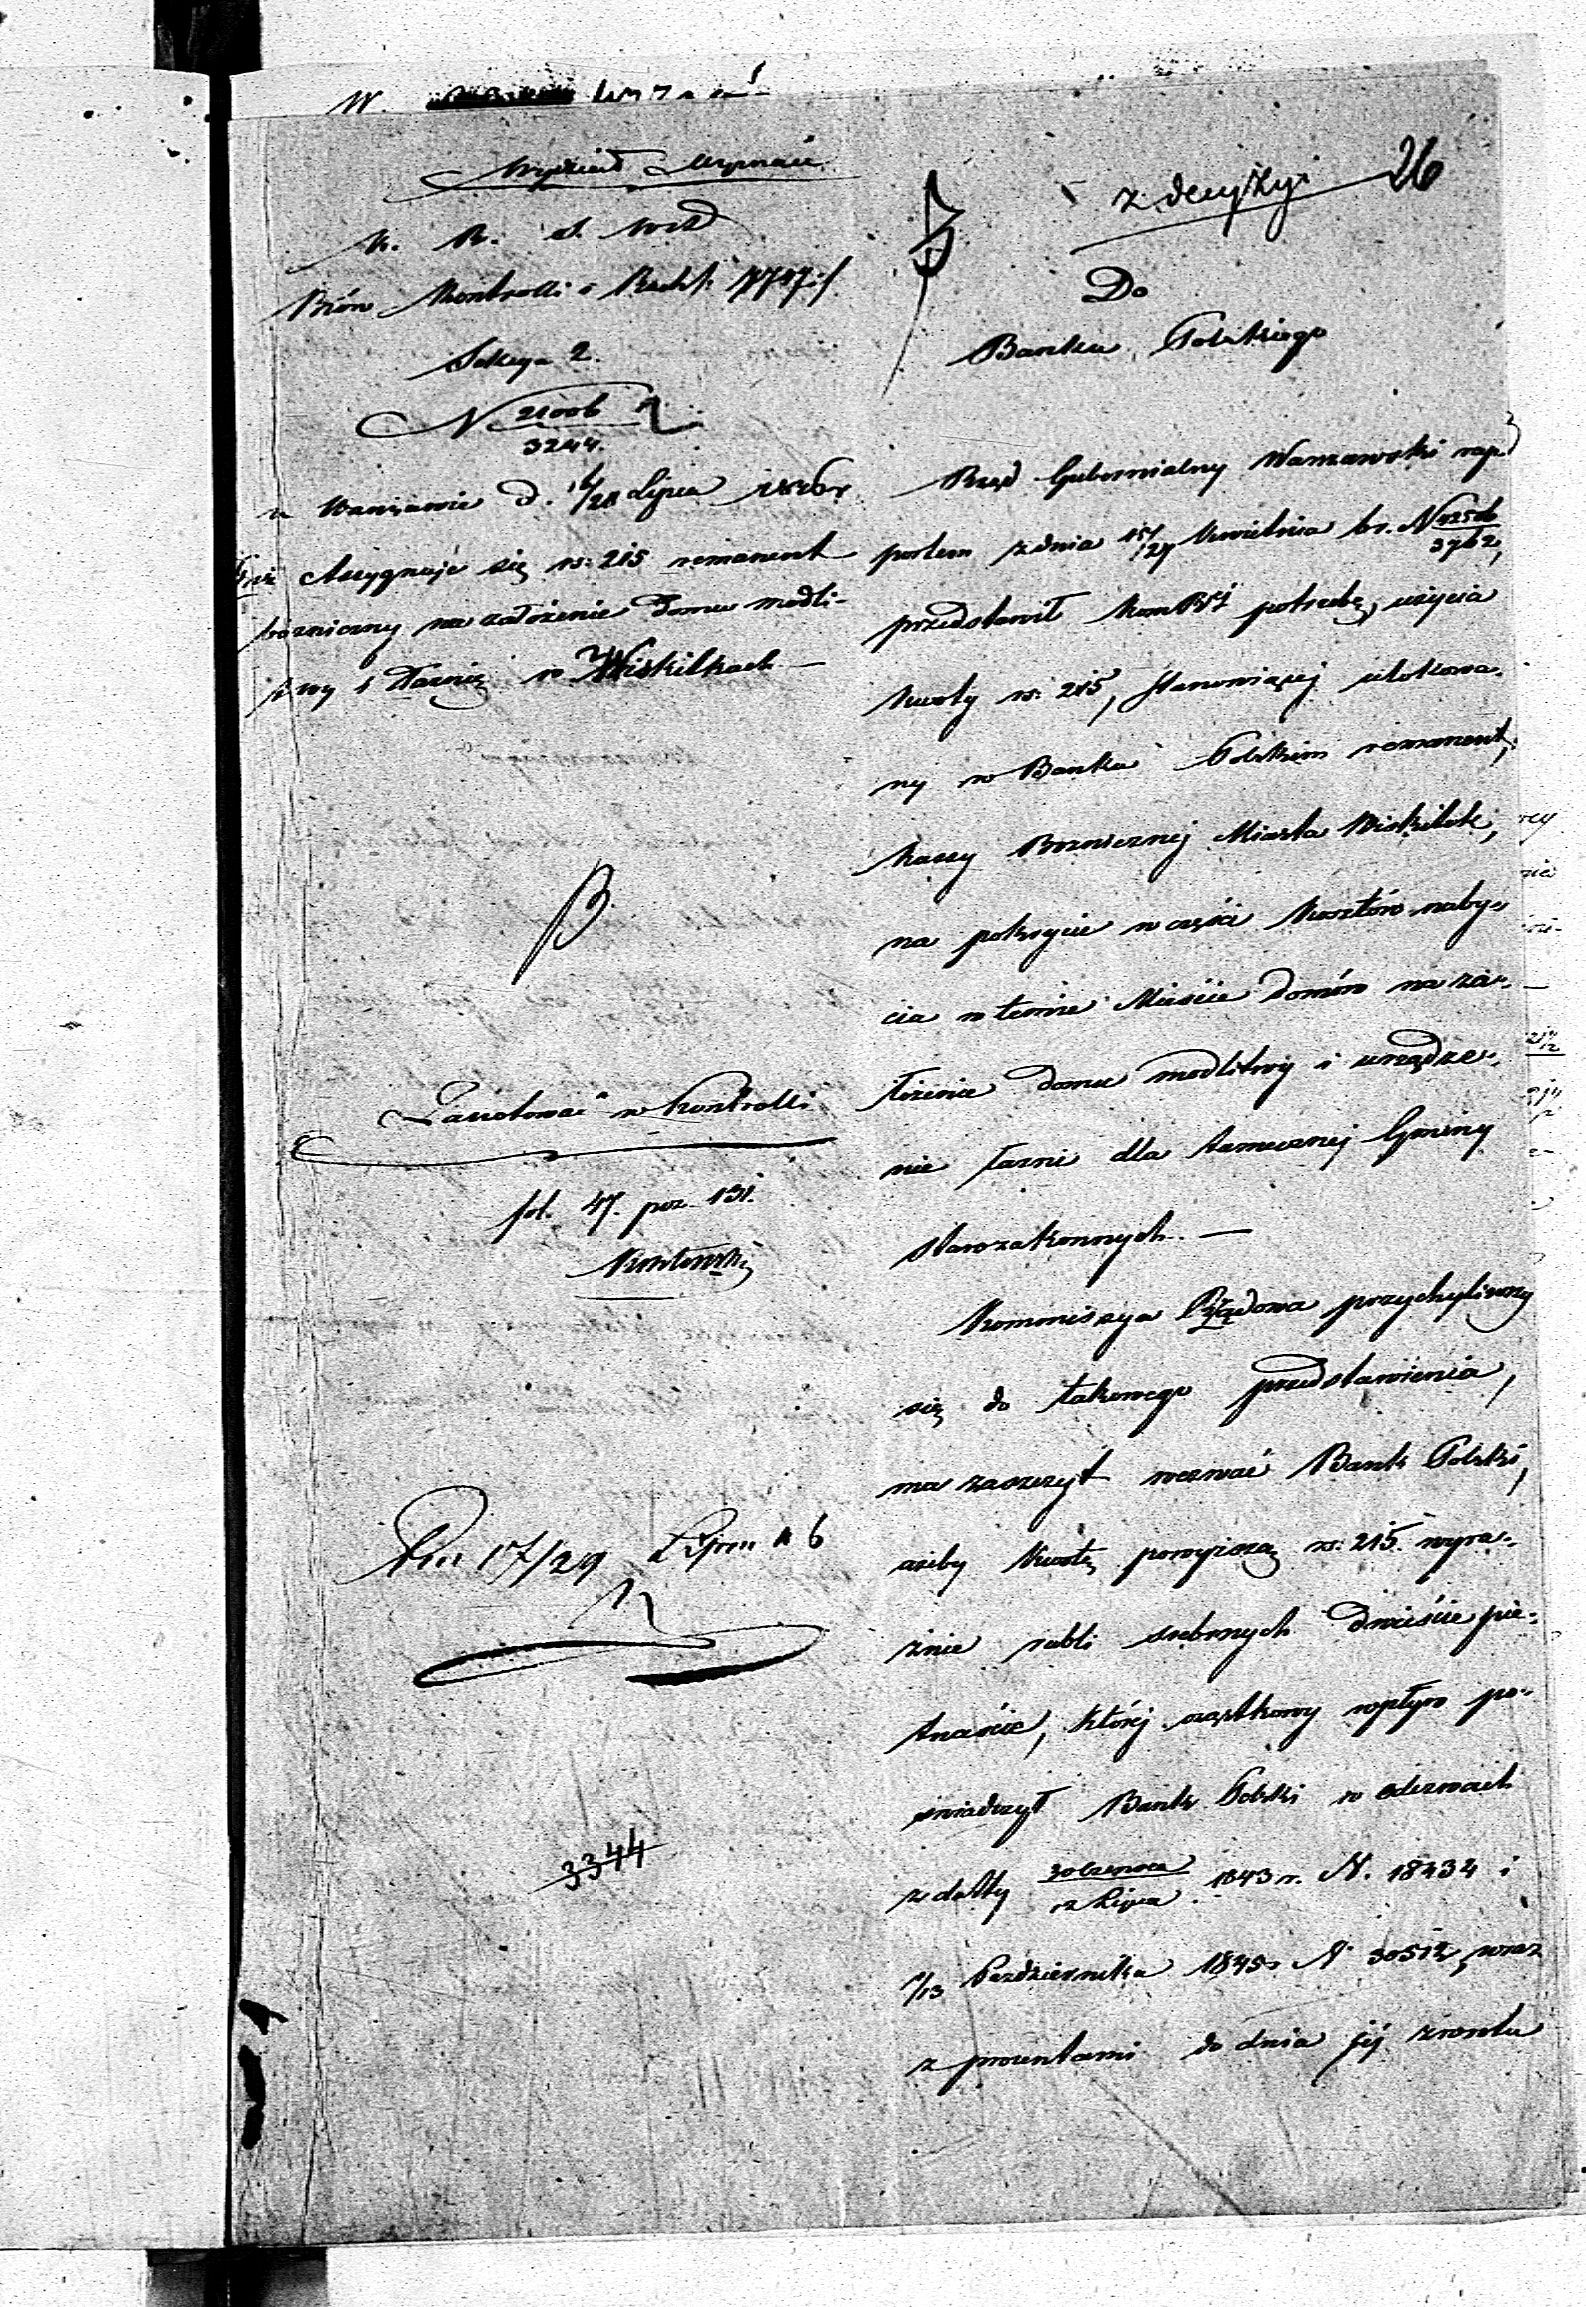 W. Wyznań
Wydział Wyznań
K. R. S. W. i D.
Biór Kontrolli i Rachk:
Sekcya 2.
N 21006
3244.
w Warszawie d. 16/28 Lipca
Assygnuje się rs: 215 remanent
bożniczny na założenie Domu modli-
twy i Łaźnię w Wiskitkach —
B.
Zanotować w Kontrolli
fol. 47. poz. 131.
Dn 17/29 Lipca 6
3344
z decyzyi
26
Do
Banku Polskiego
Rząd Gubernialny Warszawski rap-
portem z dnia Kwietnia br. N
przedstawił Kom potrzebę użycia
kwoty rs: 215, stanowiącej ulokowa-
ny w Banku Polskim remanent,
kassy Bożnicznej Miasta Wiskitek,
na pokrycie w części kosztów naby-
cia w temże Mieście domów na za-
łożenie domu modlitwy i urządze-
nie łaźni dla tamecznej Gminy
starozakonnych. —
Kommissya Rządowa przychyliwszy
się do takowego przedstawienia,
ma zaszczyt wezwać Bank Polski,
ażeby kwotę powyższą rs: 215. wyra-
źnie rubli srebrnych dwieście pię-
tnaście, której cząstkowy wpływ po-
świadczył Bank Polski w odezwach
z datty 30 Czerwca / 12 Lipca 1843 r. N. 18434 i
1/13 Października 1845 r. N 30512, wraz
z procentami do dnia jej zwrotu